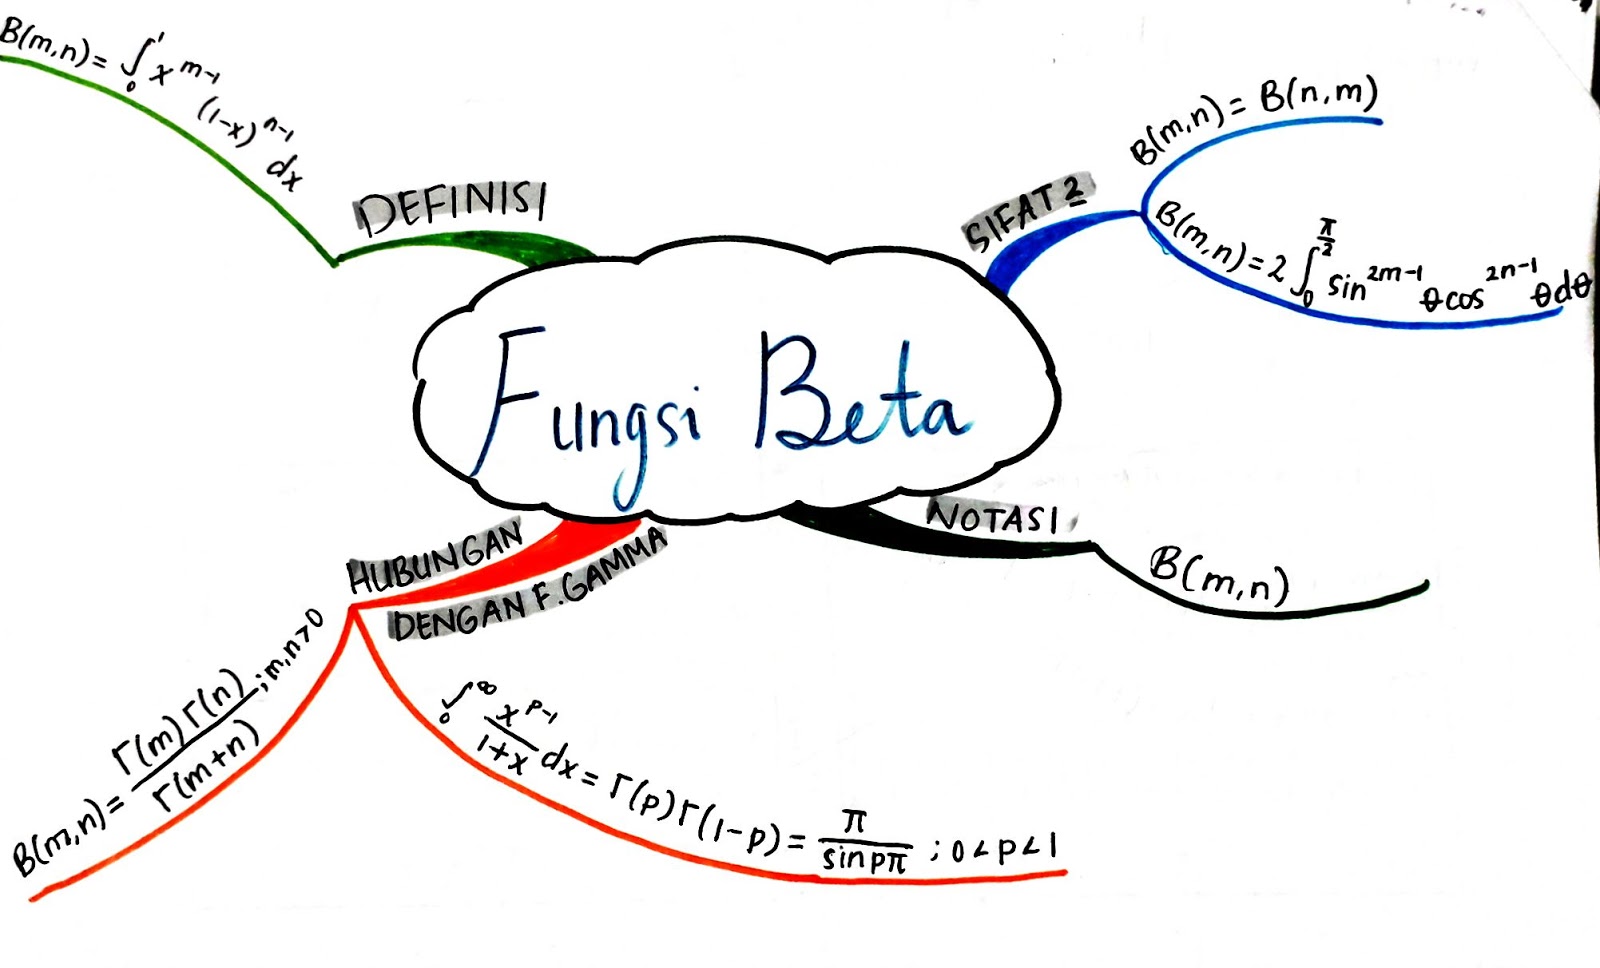 Fungsi Beta
DEFINISI
B(m,n) = ∫₀¹ x^{m-1} (1-x)^{n-1} dx
SIFAT2
B(m,n) = B(n,m)
B(m,n) = 2 ∫₀^{π/2} sin^{2m-1} θ cos^{2n-1} θ dθ
NOTASI
B(m,n)
HUBUNGAN
DENGAN F. GAMMA
B(m,n) = Γ(m) Γ(n) / Γ(m+n) ; m,n > 0
∫₀^∞ x^{p-1} / 1+x dx = Γ(p) Γ(1-p) = π / sin pπ ; 0 < p < 1